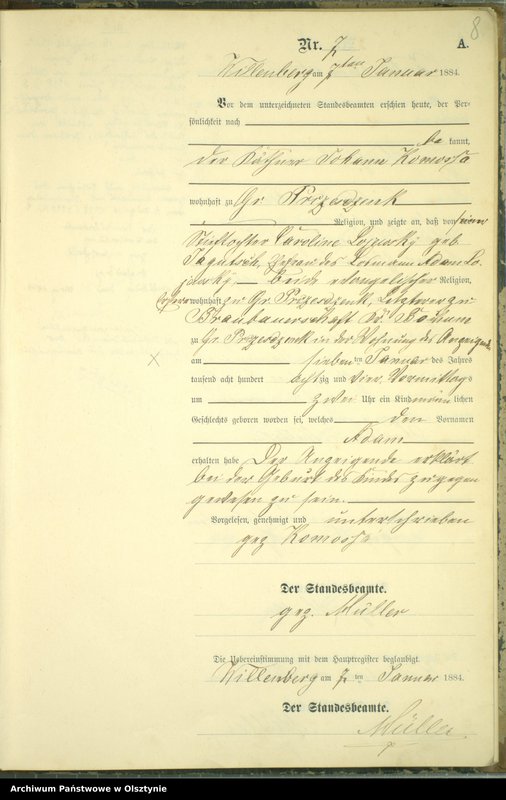 8
Nr. 7 A.
Willenberg am 7ten Januar 1884.
Vor dem unterzeichneten Standesbeamten erschien heute, der Per-
sönlichkeit nach
be kannt,
der Käthner Johann Komossa
wohnhaft zu Gr. Przesdzenk
Religion, und zeigte an, daß von seiner
Stieftochter Caroline geb.
Ehefrau des Losmann Adam
beide evangelischer Religion,
wohnhaft zu Gr. Przesdzenk, Letzterer zu
Braubauerschaft
zu Gr. Przesdzenk in der Wohnung des Anzeigenden
am sieben ten Januar des Jahres
tausend acht hundert achtzig und vier, Vormittags
um zwei Uhr ein Kind männlichen
Geschlechts geboren worden sei, welches den Vornamen
Adam
erhalten habe Der Anzeigende erklärt
bei der Geburt des Kindes zugegen
gewesen zu sein.
Vorgelesen, genehmigt und unterschrieben
gez Komossa
Der Standesbeamte.
gez. Müller
Die Uebereinstimmung mit dem Hauptregister beglaubigt.
Willenberg am 7 ten Januar 1884.
Der Standesbeamte.
Müller
Archiwum Państwowe w Olsztynie